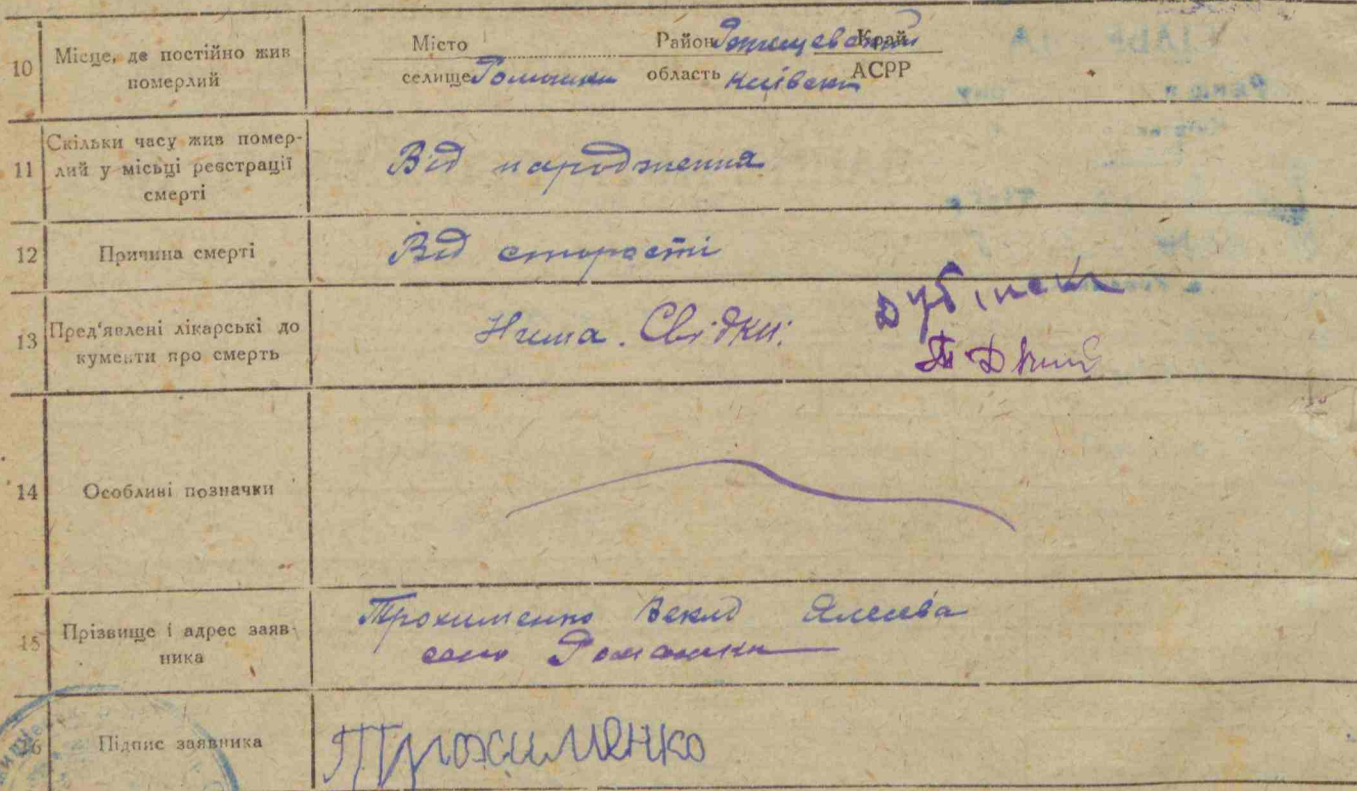 10 Місце, де постійно жив
померлий
Місто Район Край
селище Ромашки область Київськ АСРР
11 Скільки часу жив помер-
лий у місьці реєстрації
смерті
Від народження
12 Причина смерті
Від старости
13 Пред'явлені лікарські до
кументи про смерть
Нема. Свідки:
14 Особливі позначки
15 Прізвище і адрес заяв-
ника
Трохименко
село Ромашки
16 Підпис заявника
Трохименко